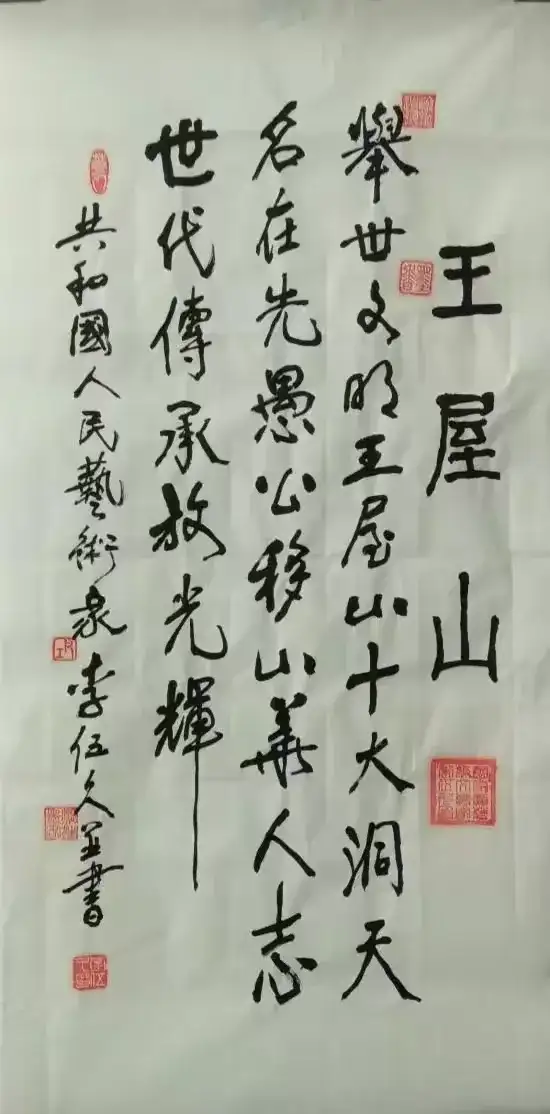 王屋山
舉世文明王屋山十大洞天
名在先愚公移山華人志
世代傳承放光輝
共和國人民藝術家李伍久並書